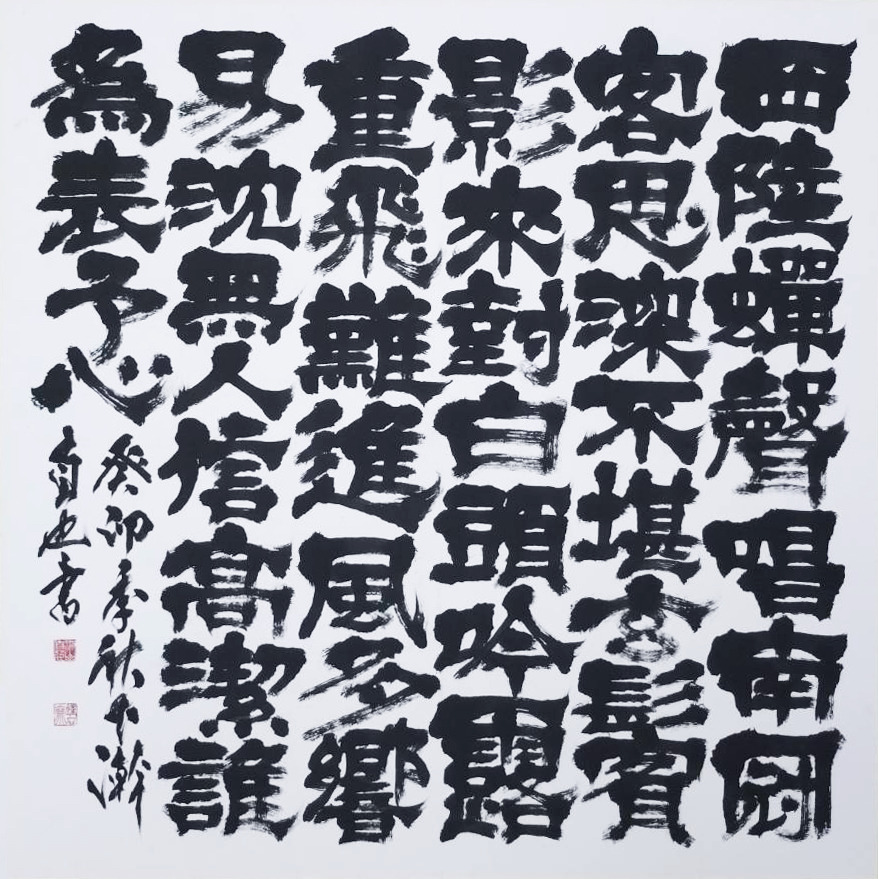 西陸蟬聲唱南冠
客思深不堪玄鬢
影來對白頭吟露
重飛難進風多響
易沈無人信高潔誰
為表予心
癸卯季秋